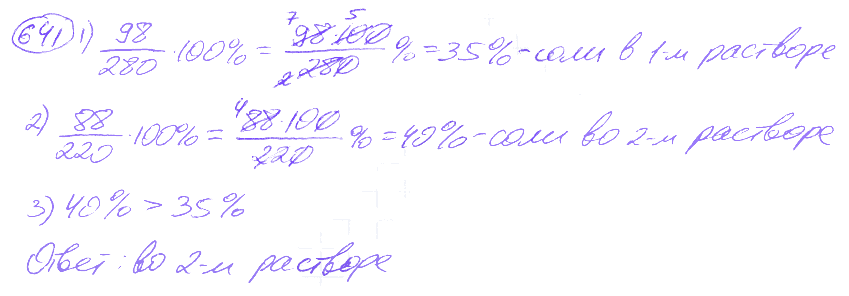 641 1) 98/280 · 100% = 98·100/280 % = 35% - соли в 1-м растворе
2) 88/220 · 100% = 88·100/220 % = 40% - соли во 2-м растворе
3) 40% > 35%
Ответ: во 2-м растворе